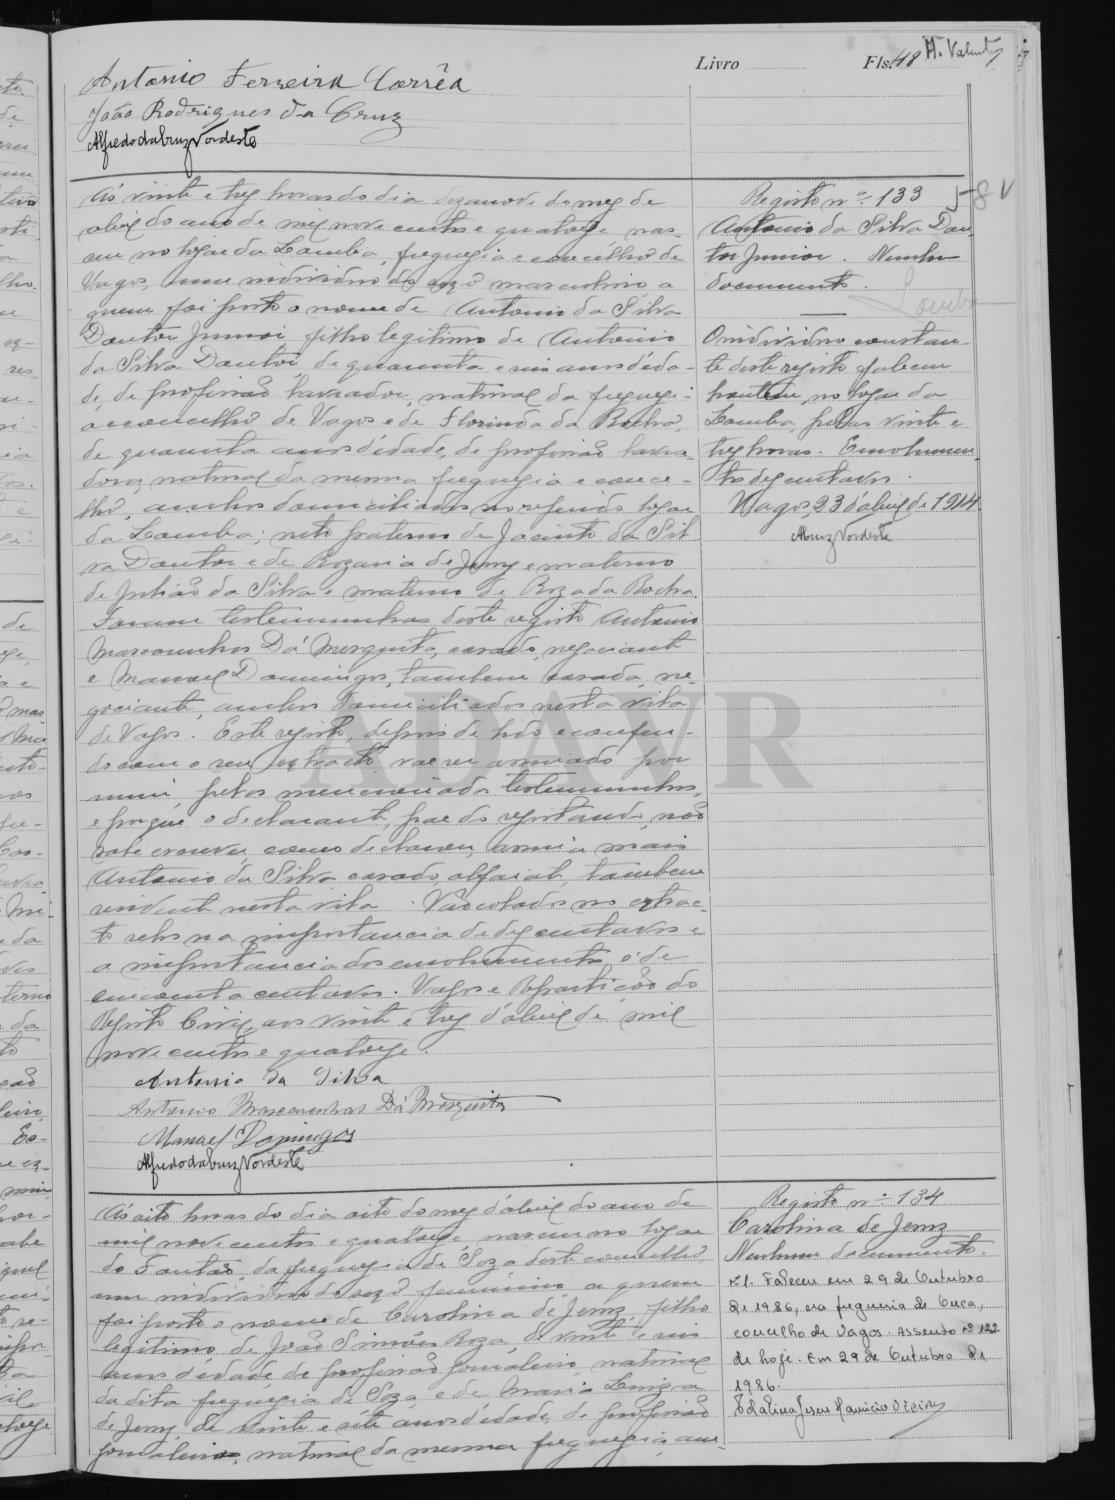 Livro Fls. 48 A. Valente
Antonio Ferreira Corrêa
João Rodrigues da Cruz
Alfredo da Cruz Nordeste
58 V
Ás vinte e tres horas do dia dezanove do mez de
abril do ano de mil nove centos e quatorze nas-
ceu no logar da Lomba, freguezia e concelho de
Vagos, um individuo do sexo masculino, a
quem foi posto o nome de Antonio da Silva
Doutor Junior, filho legitimo de Antonio
da Silva Doutor, de quarenta e seis anos d'eda-
de, de profissão lavrador, natural da freguezi-
a e concelho de Vagos e de Florinda da Rocha,
de quarenta anos d'edade, de profissão lavra-
dora, natural da mesma freguezia e conce-
lho, ambos domiciliados no referido logar
da Lomba; neto paterno de Jacinto da Sil
va Doutor e de Rozaria de Jesus e materno
de Julião da Silva e materno de Roza da Rocha.
Foram testemunhas deste registo Antonio
Mascarenhas Dá Mesquita, casado, negociante
e Manoel Domingos, tambem casado, ne-
gociante, ambos domiciliados nesta vila
de Vagos. Este registo, depois de lido e conferi-
do com o seu extracto, vae ser assinado por
mim, pelas mencionadas testemunhas,
e porque o declarante, pae do registando, não
sabe escrever, como declarou, assina mais
Antonio da Silva, casado, alfaiate, tambem
residente nesta vila. Vão colados no extrac-
to selos na importancia de dez centavos e
a importancia dos emolumentos é de
cincoenta centavos. Vagos e Repartição do
Registo Civil, aos vinte e tres d'abril de mil
nove centos e quatorze.
Antonio da Silva
Antonio Mascarenhas Dá Mesquita
Manuel Domingos
Alfredo da Cruz Nordeste
Registo nº 133
Antonio da Silva Dou-
tor Junior. Nenhum
documento.
Lomba
O individuo constan-
te deste registo faleceu
hontem, no logar da
Lomba, pelas vinte e
tres horas. Emolumen-
tos dez centavos.
Vagos, 23 d'abril de 1914.
A Cruz Nordeste
ADAVR
Ás oito horas do dia oito do mez d'abril do ano de
mil nove centos e quatorze, nasceu no logar
do Fontão, da freguezia de Soza deste concelho
um individuo do sexo feminino, a quem
foi posto o nome de Carolina de Jesus, filha
legitima de João Simões Roza, de vinte e seis
anos d'edade, de profissão jornaleiro, natural
da dita freguezia de Soza, e de Maria Luiza
de Jesus, de vinte e sete anos d'edade, de profissão
jornaleira, natural da mesma freguezia, am-
Registo nº 134
Carolina de Jesus
Nenhum documento.
nº1. Faleceu em 29 de Outubro
de 1986, na freguesia de Ouca,
concelho de Vagos. Assento nº 122
de hoje. Em 29 de Outubro de
1986.